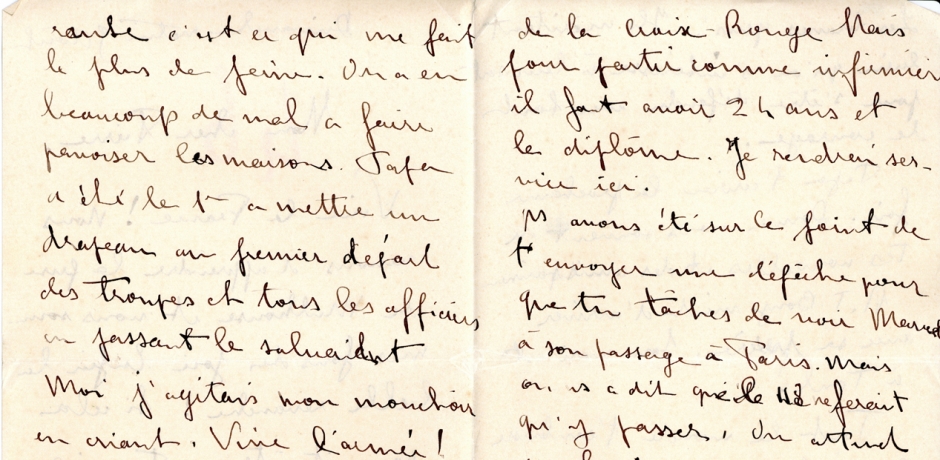 c'est ce qui me fait
le plus de peine. On a eu
beaucoup de mal a faire
pavoiser les maisons. Papa
a été le 1er a mettre un
drapeau au premier départ
des troupes et tous les officiers
en passant le saluaient
Moi j'agitais mon mouchoir
en criant. Vive l'armée!
de la Croix-Rouge Mais
pour partir comme infirmier
il faut avoir 24 ans et
le diplôme. Je rendrai ser-
vice ici.
ns avons été sur le point de
t'envoyer une dépêche pour
que tu tâches de voir Marcel
à son passage à Paris. Mais
on ns a dit que le
qu'y passer. On attend